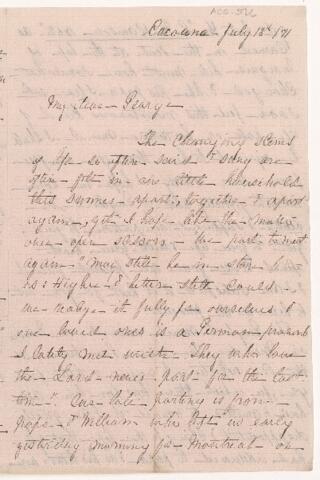 Cacouna July 18th /71
My dear George
The changing scenes
of life so often said & sung are
often felt in our little household
this summer apart, together & apart
again, yet I hope like the
once open scissors - "we part to meet
again." May still be in store for
us: Higher & better still, could
we realize it fully for ourselves &
our loved ones is a German proverb
I lately met with "They who love
the Lord never part for the last
time". Our late parting is from
papa & William who left us early
yesterday morning for Montreal on